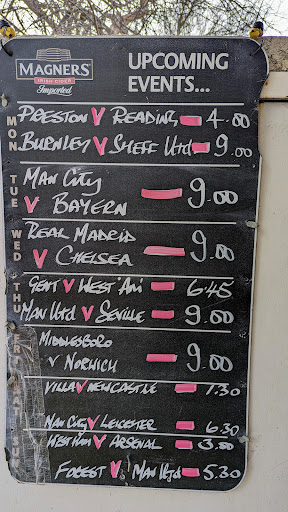 MAGNERS
IRISH CIDER
Imported
UPCOMING
EVENTS...
MON
PRESTON V READING - 4.00
BURNLEY V SHEFF Utd - 9.00
TUE
MAN CITY
V BAYERN - 9.00
WED
REAL MADRID
V CHELSEA - 9.00
THU
GENT V WEST HAM - 6.45
MAN Utd V SEVILLE - 9.00
FRI
MIDDLESBORO
V NORWICH - 9.00
SAT
VILLA V NEWCASTLE - 1.30
MAN CITY V LEICESTER - 6.30
SUN
WEST HAM V ARSENAL - 3.00
FOREST V MAN Utd - 5.30